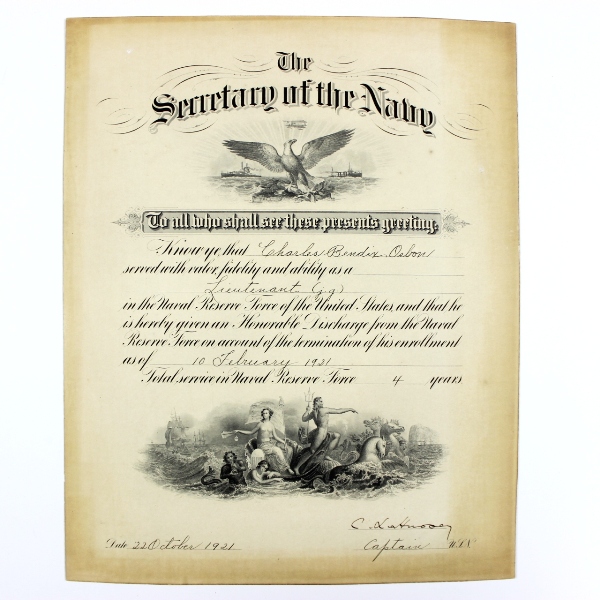 The
Secretary of the Navy
To all who shall see these presents greeting:
Know ye, that Charles Bendix Osbon
served with valor, fidelity and ability as a
Lieutenant (jg)
in the Naval Reserve Force of the United States, and that he
is hereby given an Honorable Discharge from the Naval
Reserve Force on account of the termination of his enrollment
as of 10 February 1921
Total service in Naval Reserve Force 4 years.
C.
Date 22 October 1921 Captain U.S.N.